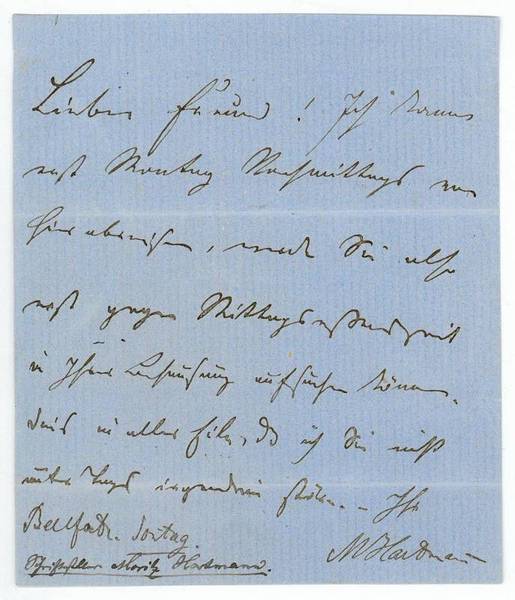 Lieber Freund! Ich kann
erst Montag Nachmittags von
hier abreisen, werde Sie also
erst gegen Mittagsessenszeit
in Ihrer Behausung aufsuchen können.
Dies in aller Eile, daß ich Sie nicht
unter Tags irgendwie störe. – Ihr
MHartmann
Sontag.
Schriftsteller Moritz Hartmann.